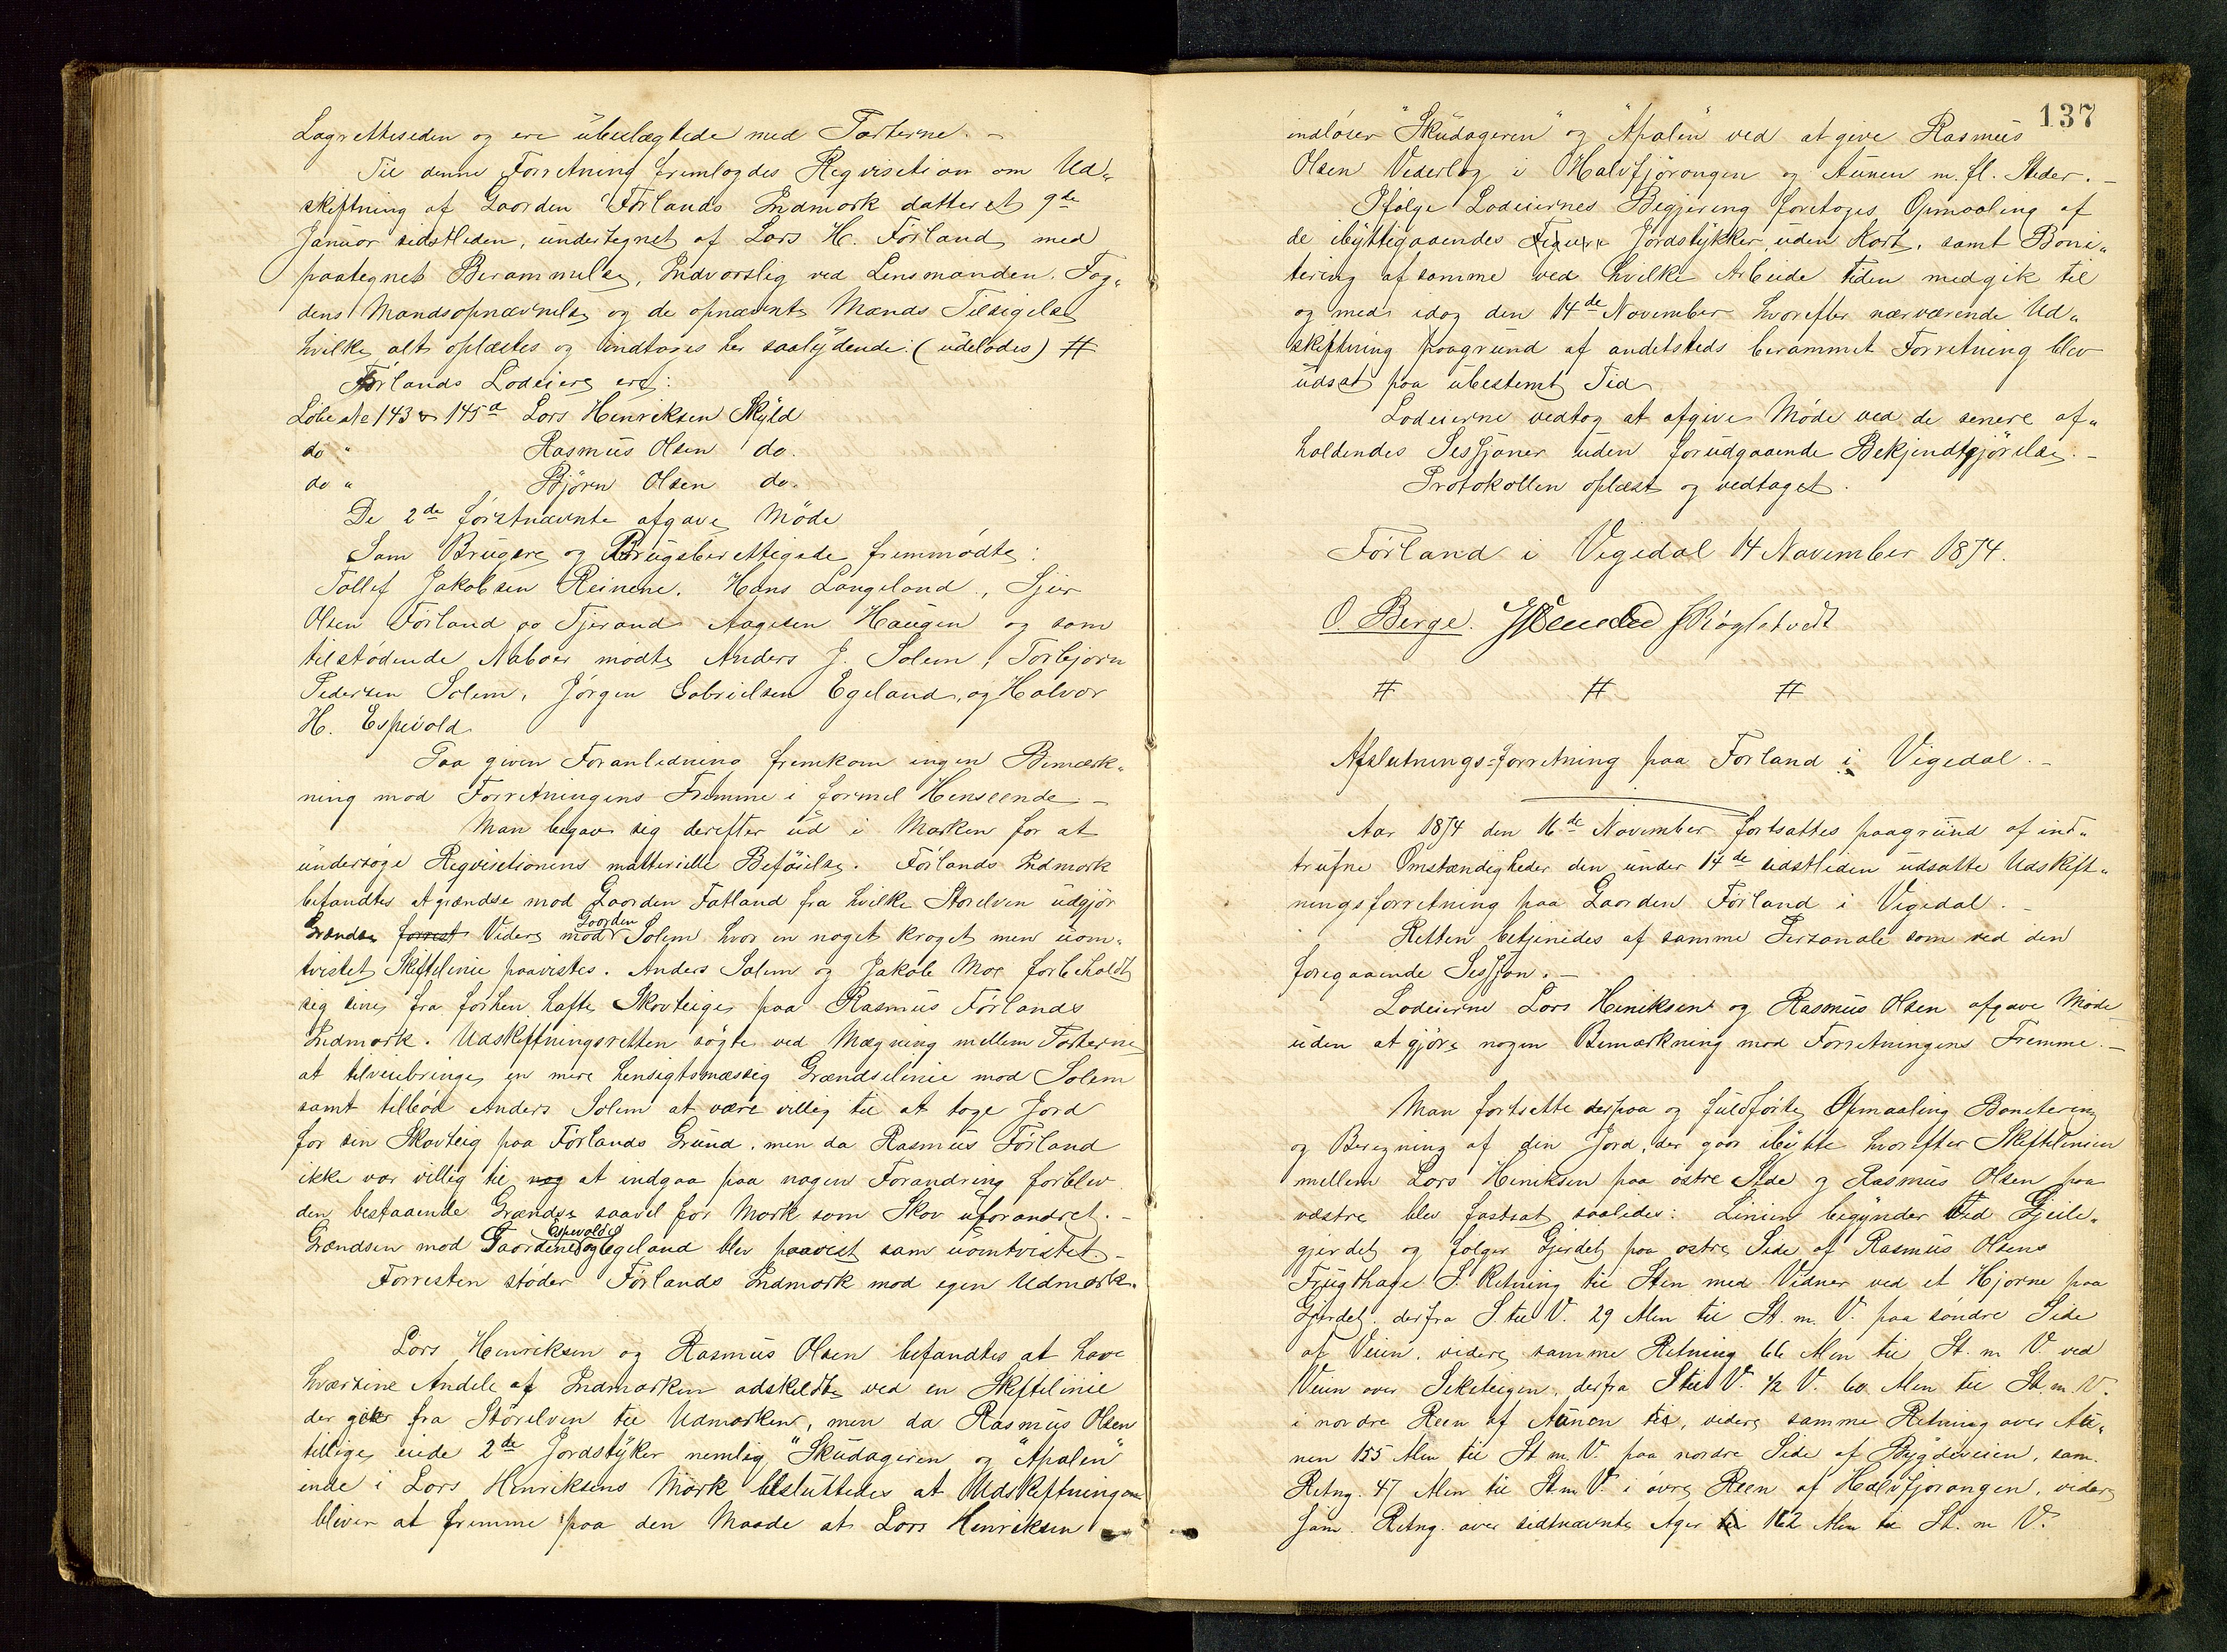 Lagretteseden og ere ubeslægtede med Parterne. –
Til denne Forretning fremlagdes Reqvisition om Ud„
skiftning af Gaarden Førlands Indmark datteret 9de
Januar sidstleden, undertegnet af Lars H. Førland med
paategnet Berammelse, Indvarslig ved Lensmanden. Fog„
dens Mandsopnævnelse og de opnævnte Mænds Tilsigelse
hvilke alt oplæstes og indtages her saalydende: (udelodes) #
Førlands Lodeiere ere:
Løbe ate 143 & 145a Lars Henriksen Skyld
do „ Rasmus Olsen do.
do „ Bjørn Olsen do.
De 2de førstnævnte afgave Møde
Som Brugere og Brugsberettigede fremmødte:
Tollef Jakobsen Reinene. Hans Langeland, Sjur
Olsen Førland og Tjerand Aagesen Haugen og som
tilstødende Naboer mødte Anders J. Solem, Torbjørn
Pedersen Solem, Jørgen Gabrielsen Egeland, og Halvor
H. Espevold
Paa given Foranledning fremkom ingen Bemærk„
ning mod Forretningens Fremme i formel Henseende –
Man begav sig derefter ud i Marken for at
undersøge Reqvisitionens matterielle Beføielse. Førlands Indmark
befandtes at grændse mod Gaarden Fatland fra hvilke Storelven udgjør
Grændse forrest Videre mod Gaarden Solem hvor en noget kroget men uom„
tvistet Skiftelinie paavistes. Anders Solem og Jakob Moe forbeholdt
sig sine fra forhen hafte Skovteige paa Rasmus Førlands
Indmark. Udskiftningsretten søgte ved Mægning mellem Parterne
at tilveiebringe en mere hensigtsmæssig Grændselinie mod Solem
samt tilbød Anders Solem at være villig til at tage Jord
for sin Skovteig paa Førlands Grund, men da Rasmus Førland
ikke var villig til nog at indgaa paa nogen Forandring forblev
den bestaaende Grændse saavel for Mark som Skov uforandret. –
Grændsen mod Gaardene Espevold og Egeland blev paavist som uomtvistet –
Forresten støder Førlands Indmark mod egen Udmark.
Lars Henriksen og Rasmus Olsen befandtes at have
hværsine Andele af Indmarken adskildte ved en Skiftelinie
der gaar fra Storelven til Udmarken, men da Rasmus Olsen
tillige eiede 2de Jordstyker nemlig "Skudageren og "Apalen"
inde i Lars Henriksens Mark besluttedes at Udskiftningen
bliver at fremme paa den Maade at Lars Henriksen
137
indløser "Skudageren" og "Apalen" ved at give Rasmus
Olsen Vederlag i Halvfjørongen og Aunen m. fl. Steder. –
Ifølge Lodeiernes Begjæring foretages Opmaaling af
de ibyttegaaendes Figure Jordstykker, uden Kort, samt Boni„
tering af samme ved hvilke Arbeide tiden medgik til
og med idag den 14de November hvorefter nærværende Ud„
skiftning paagrund af andetsteds berammet Forretning blev
udsat paa ubestemt Tid
Lodeierne vedtog at afgive Møde ved de senere af„
holdendes Sessjoner uden forudgaaende Bekjendtgjørelse. –
Protokollen oplæst og vedtaget.
Førland i Vigedal 14 November 1874.
O. Berge.
# # #
Afslutnings=forretning paa Førland i Vigedal. –
Aar 1874 den 16de November fortsattes paagrund af ind„
trufne Omstændigheder den under 14de sidstleden udsatte Udskift„
ningsforretning paa Gaarden Førland i Vigedal. –
Retten betjenedes af samme Personale som ved den
foregaaende Sessjon. –
Lodeierne Lars Henriksen og Rasmus Olsen afgave Møde
uden at gjøre nogen Bemærkning mod Forretningens Fremme. –
Man fortsatte derpaa og fuldførte Opmaaling Bonitering
og Beregning af den Jord, der gaar ibytte hvorefter Skiftelinien
mellem Lars Henriksen paa østre Side og Rasmus Olsen paa
væstre blev fastsat saaledes: Linien begynder ved Gjeile„
gjerdet og følger Gjerdet paa østre Side af Rasmus Olsens
Frugthage S. Retning til Sten med Vidner ved et Hjørne paa
Gjerdet. derfra S. til V. 29 Alen til St. m. V. paa søndre Side
af Veien, videre samme Retning 66 Alen til St. m V. ved
Veien over Seketeigen, derfra S til V. 1/2 V. 60 Alen til St. m. V.
i nordre Reen af Aunen til, videre samme Retning over Au„
nen 155 Alen til St m. V. paa nordre Side af Bygdeveien, sam.
Retng. 47 Alen til St m V. i øvre Reen af Halvfjørongen, videre
sam. Retng. over sidtnævnte Ager til 162 Alen til St. m V.